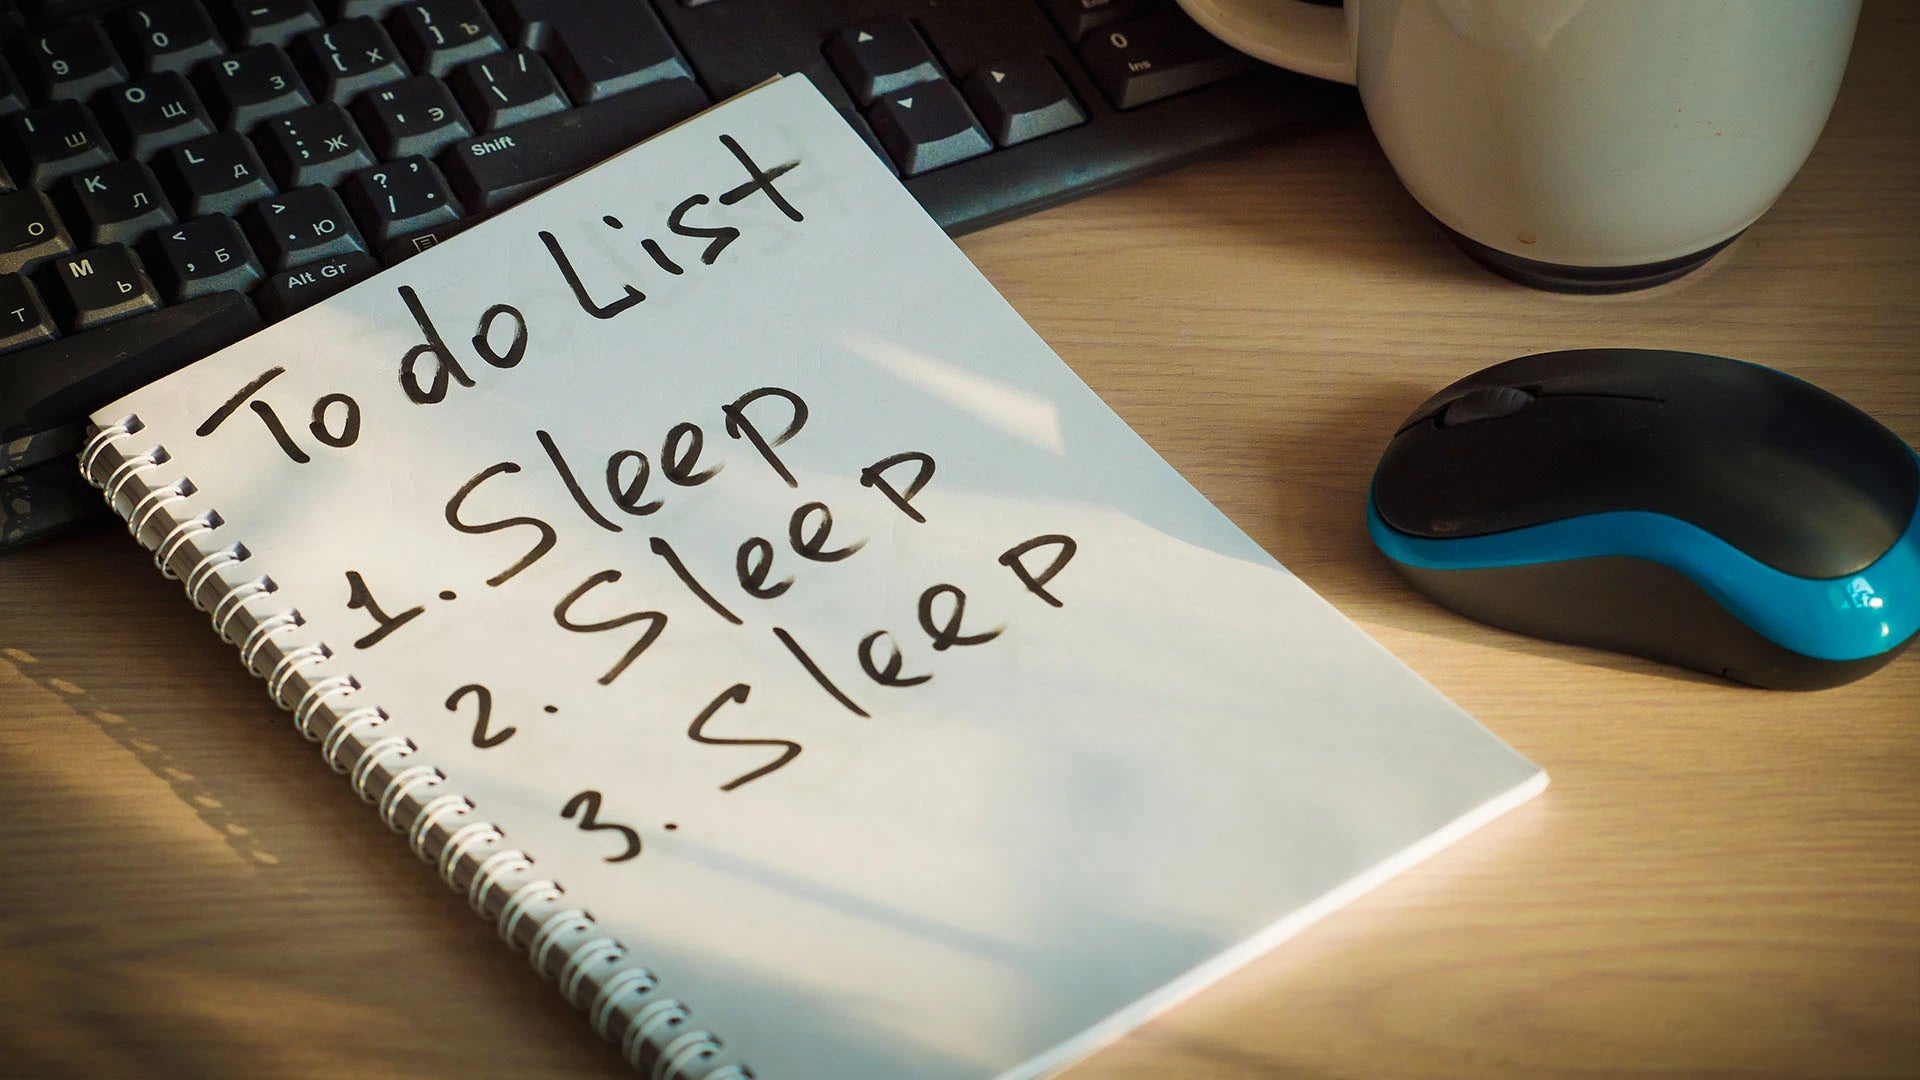 ( 9
) 0
_ -
{ [ х
} ] ъ
О щ
P з
" ' э
| \ /
I ш
L д
: ; ж
? / , .
Shift
K л
> . ю
О
< , б
Alt Gr
M ь
Т
0 Ins
To do List
1. Sleep
2. Sleep
3. Sleep